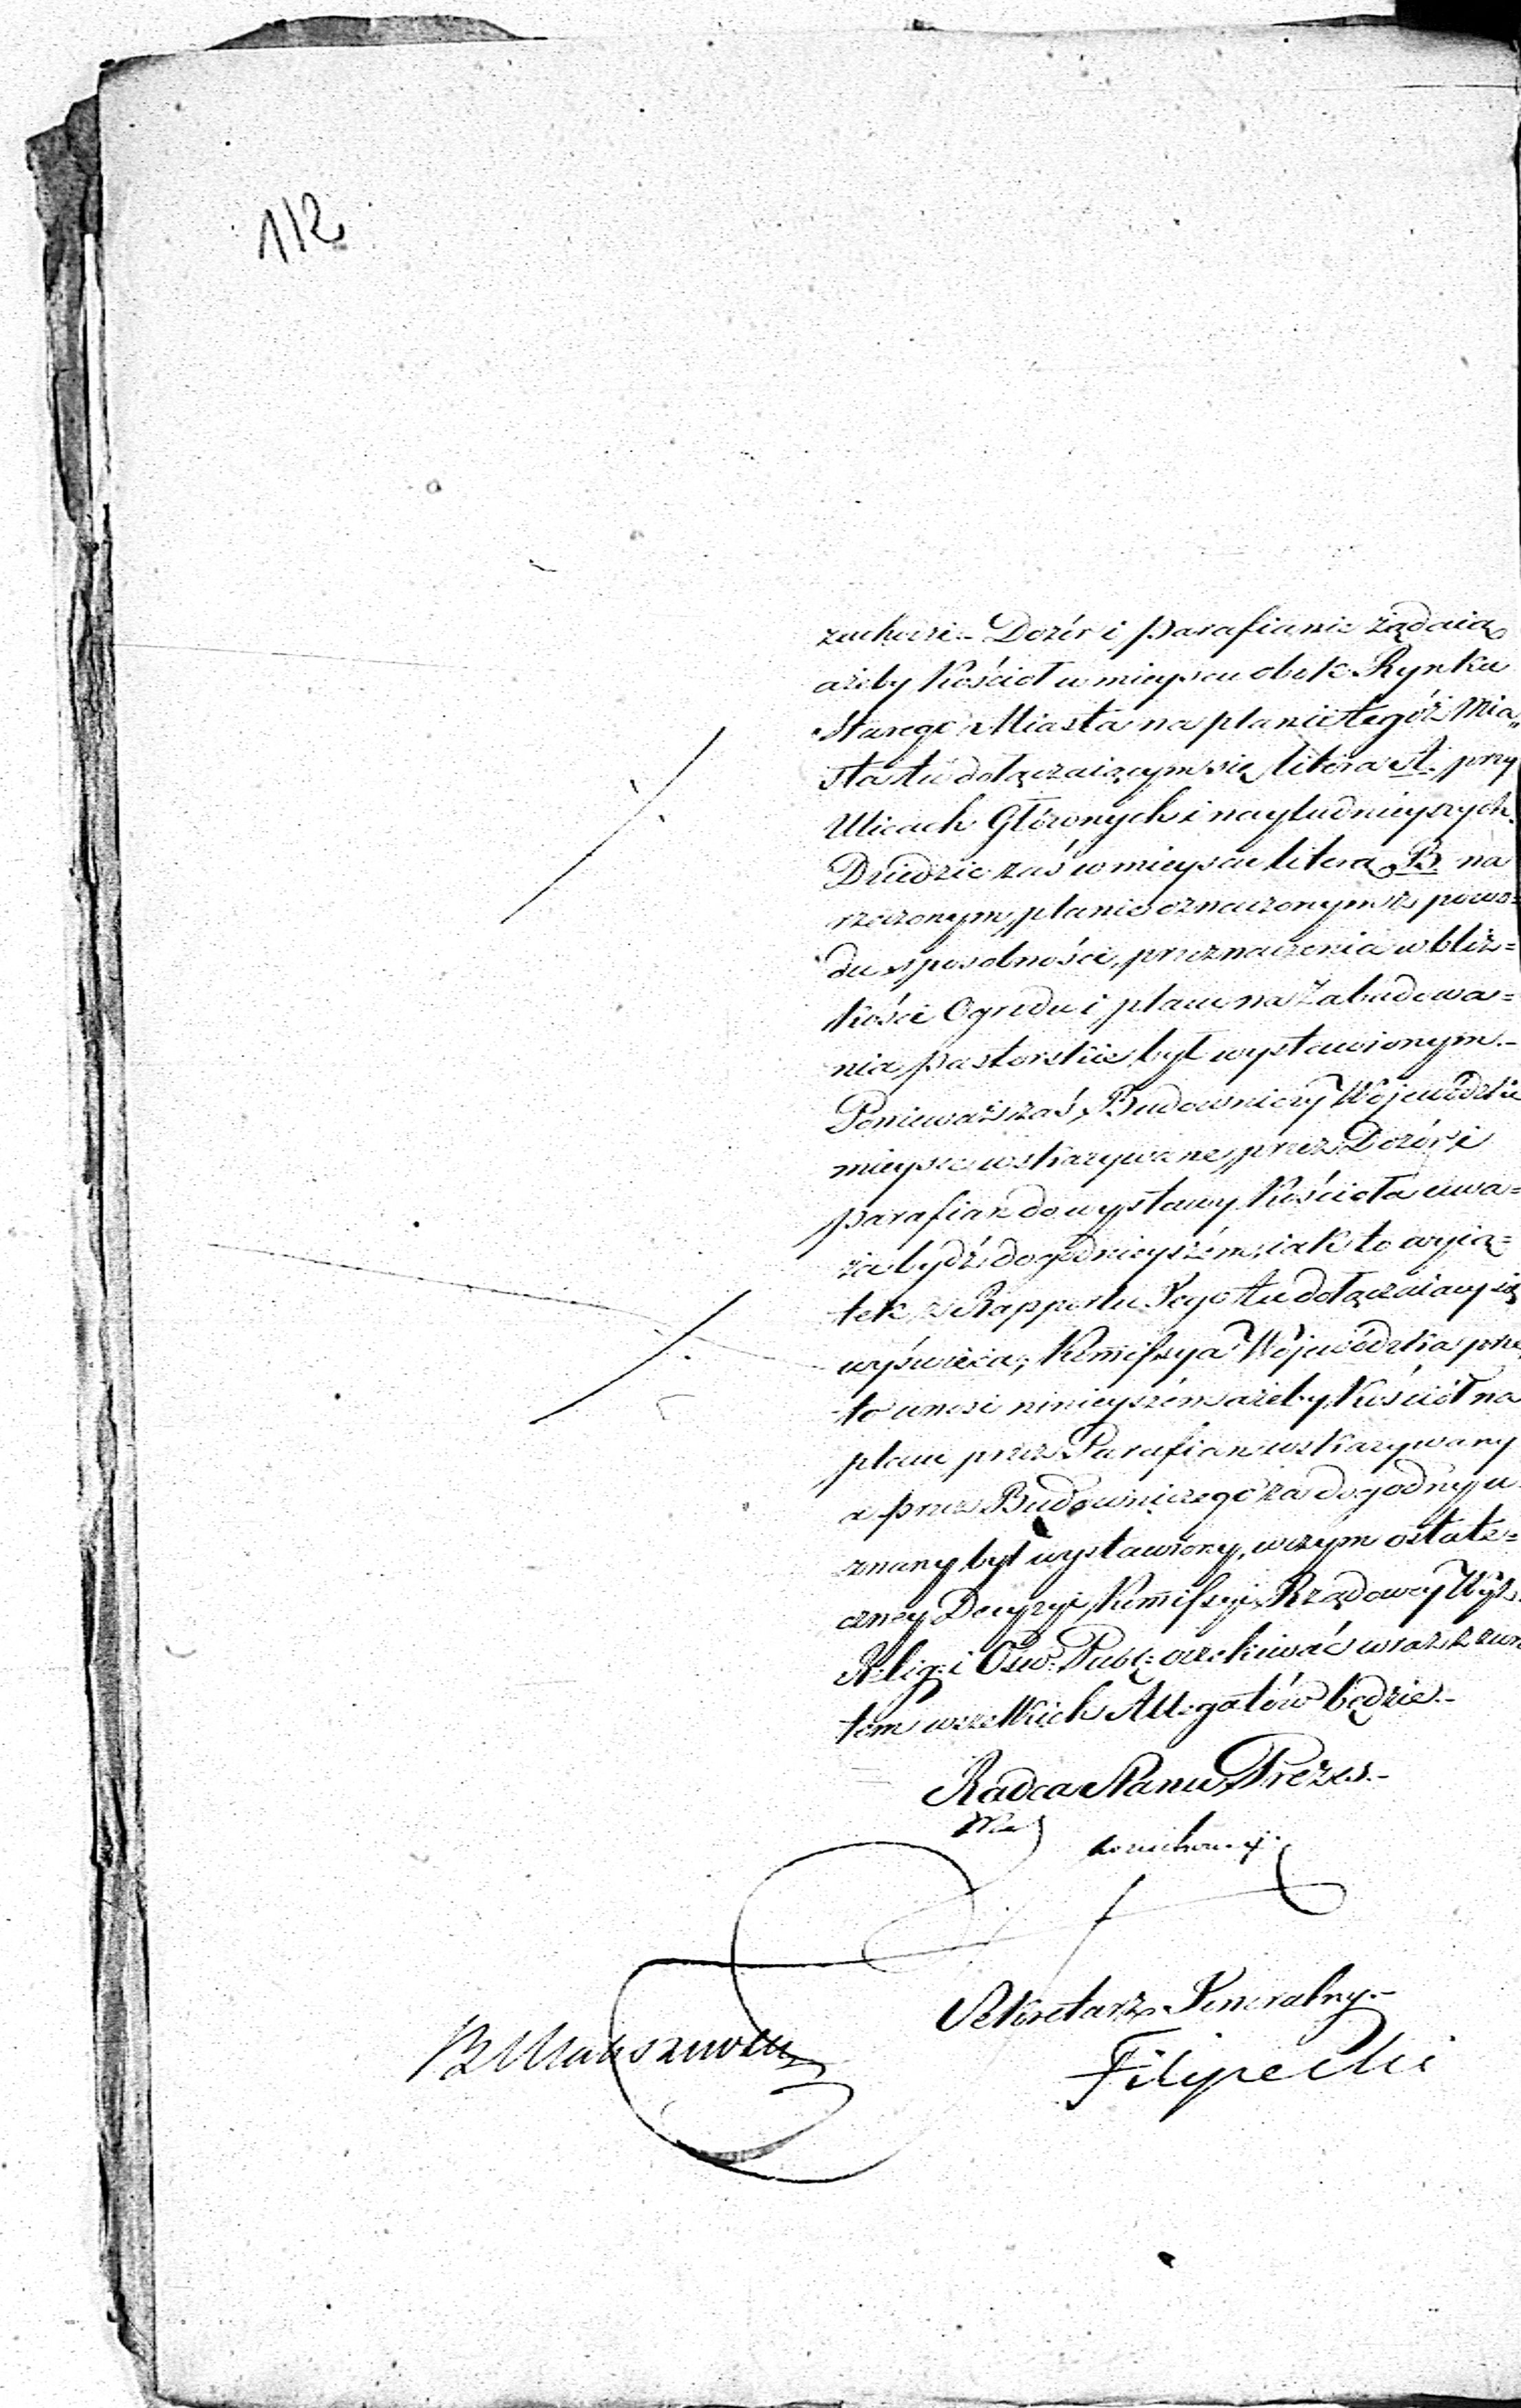 112
zachodzi.- Dozór i Parafianie żądaią
ażeby Kościoł w mieyscu obok Rynku
Starego Miasta na planie tegóż Mia„
sta tu dołączaiącym się litera A. przy
Ulicach Głównych i nayludnieyszych.
Dziedzic zaś w mieyscu litera B na
rzeczonym planie oznaczonym z powo=
du sposobności przeznaczenia w bliz=
kości Ogrodu i placu na Zabudowa=
nia Pastorskie był wystawionym.-
Ponieważ zaś Budowniczy Wojewódzki
mieysce wskazywane przez Dozór i
Parafian do wystawy Kościoła uwa=
ża bydź dogodnieyszém, iak to wyią=
tek z Rapportu Jego tu dołączaiący się
wyświeca; Kommissya Wojewódzka prze
to wnosi ninieyszém ażeby Kościół na
placu przez Parafian wskazywany
a przez Budowniczego za dogodny u
znany był wystawiony, w czym ostate=
czney Decyzyi Kommissyi Rządowey Wyz.
Relig: i Ośw: Publ: oczekiwać wraz z zwro
tem wszelkich Allegatów będzie.-
Radca Stanu Prezes.-
Sekretarz Jeneralny.-
Filipecki